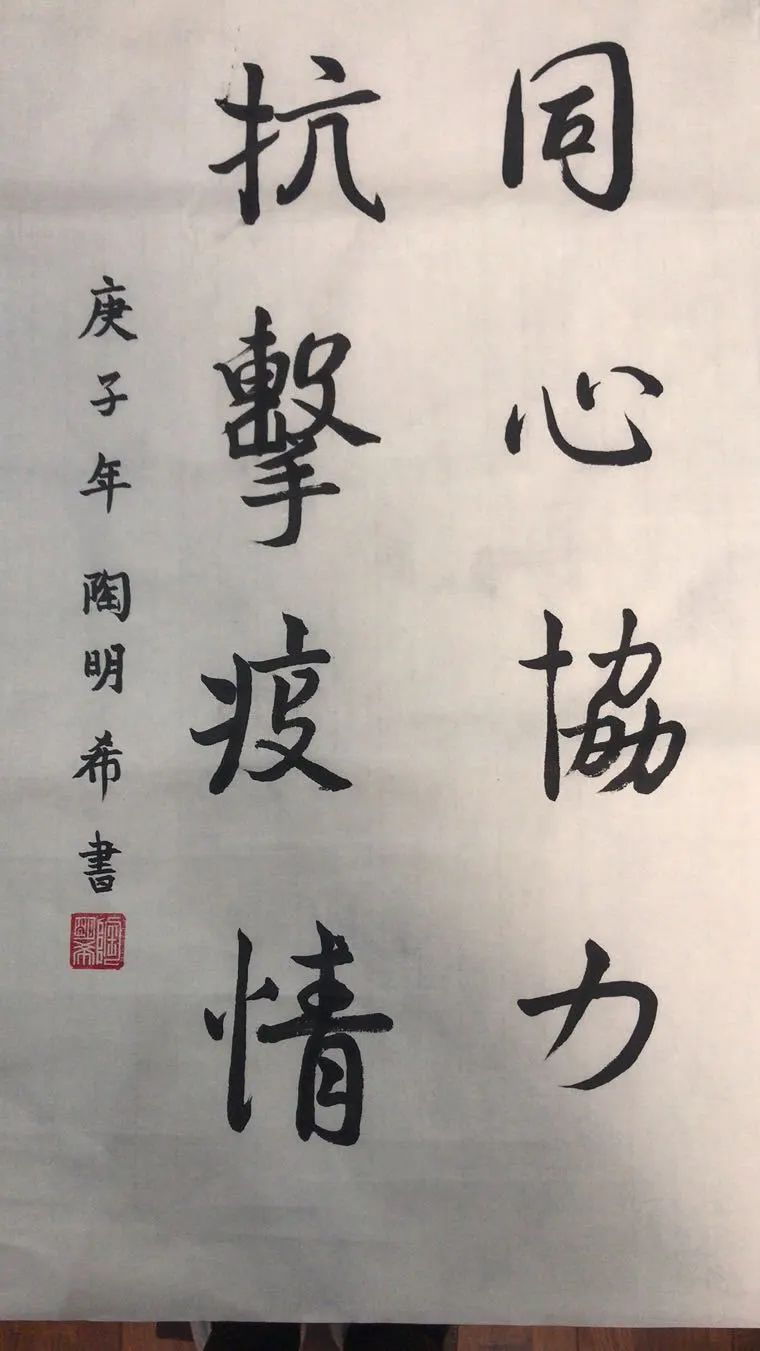 同心協力
抗擊疫情
庚子年 陶明希書
陶明希